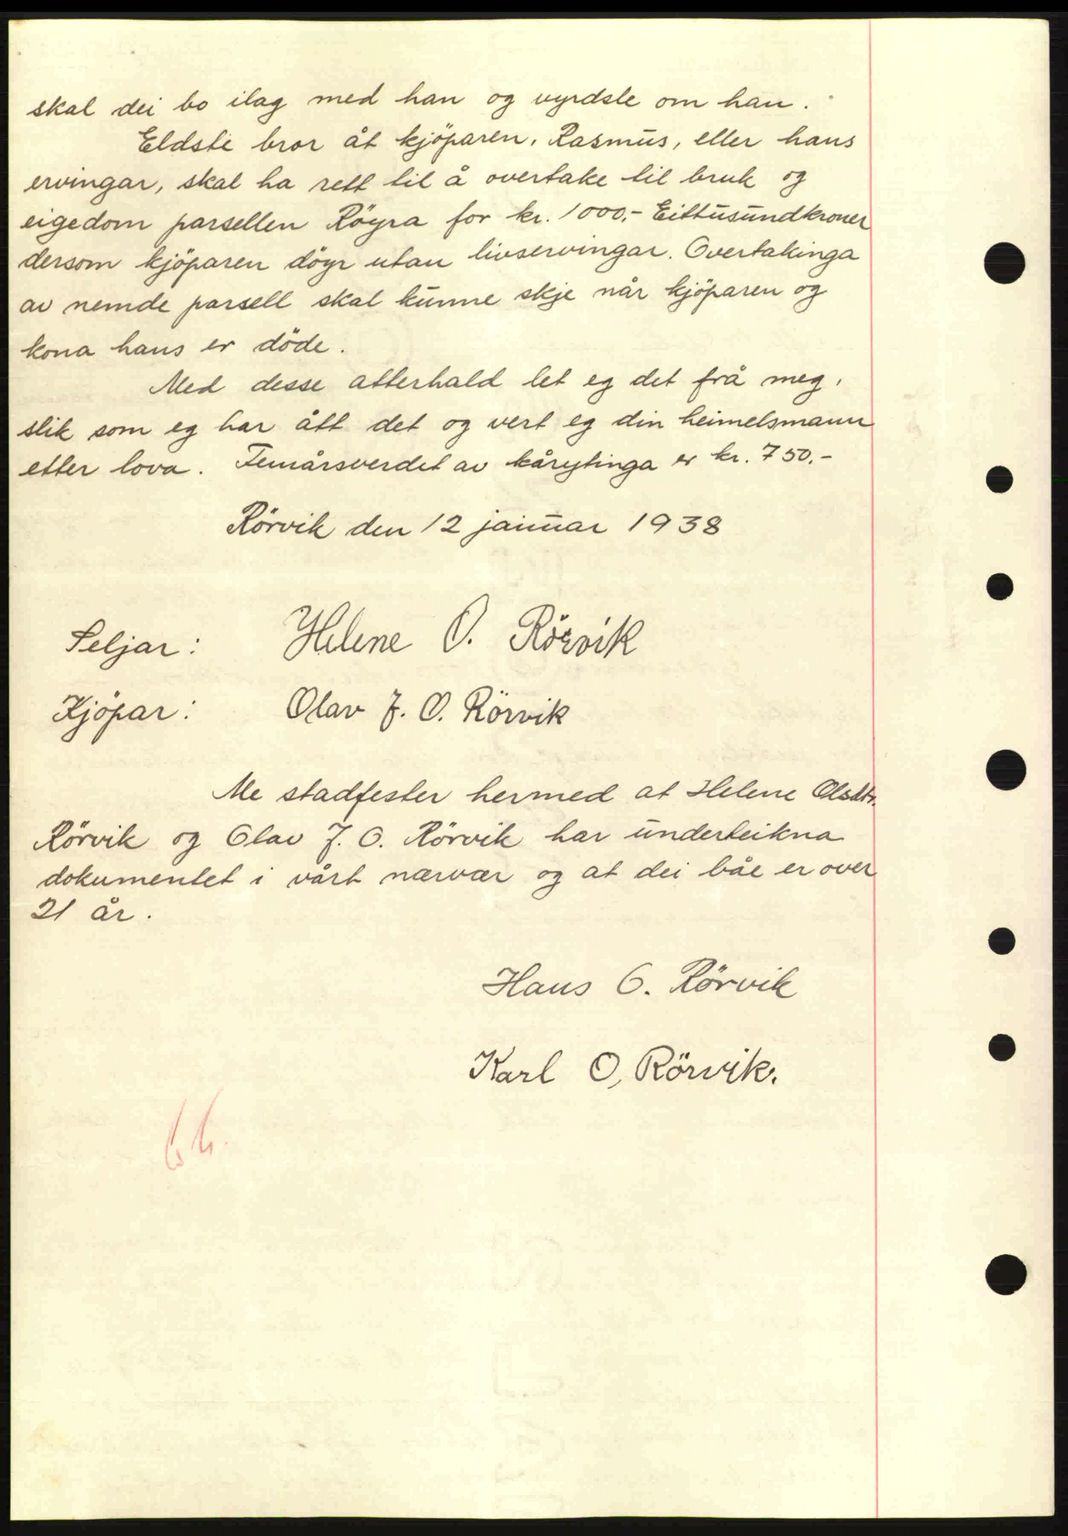 skal dei bo ilag med han og vyrdsle om han.
Eldste bror åt kjöparen, Rasmus, eller hans
ervingar, skal ha rett til å overtake til bruk og
eigedom parsellen Röyra for kr. 1000,- Eittusundkroner
dersom kjöparen döyr utan livservingar. Overtakinga
av nemde parsell skal kunne skje når kjöparen og
kona hans er döde.
Med desse atterhald let eg det frå meg,
slik som eg har ått det og vert eg din heimelsmann
etter lova. Femårsverdet av kårytinga er kr. 750,-
Rörvik den 12 januar 1938
Seljar: Helene O. Rörvik
Kjöpar: Olav J. O. Rörvik
Me stadfester hermed at Helene Olsdtr.
Rörvik og Olav J. O. Rörvik har underteikna
dokumentet i vårt nærvær og at dei båe er over
21 år.
Hans O. Rörvik
Karl O, Rörvik.